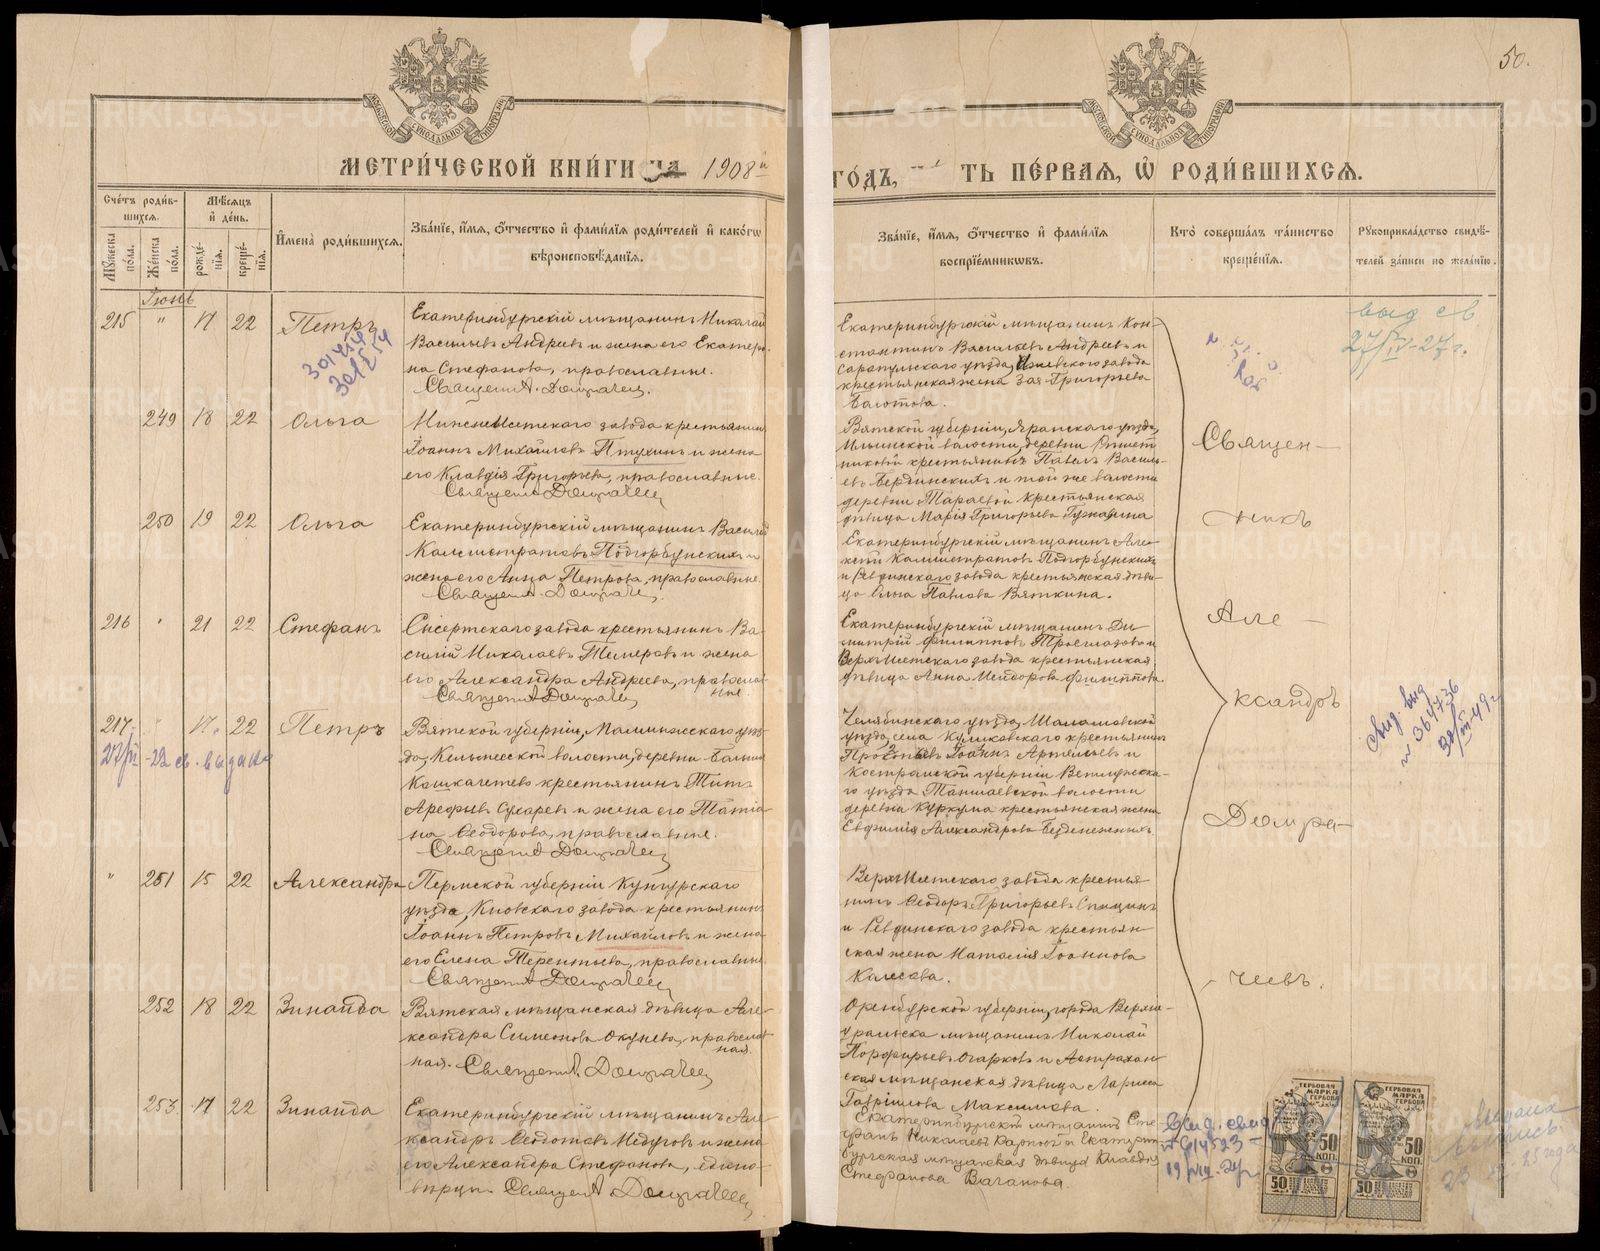 50.
МЕТРИ́ЧЕСКОЙ КНИ́ГИ НА 1908й
ГО́ДЪ, ТЬ ПЕ́РВАЯ, Ѿ РОДИ́ВШИХСЯ.
Сче́тъ роди́в-
шихся.
Мѣ́сяцъ
и҆ де́нь.
Му́жеска
по́ла.
Же́нска
по́ла.
рожде́-
нїя.
креще́-
нїя.
И҆мена̀ роди́вшихся.
Зва́нїе, и҆́мя, ѻ҆́тчество и҆ фами́лїя роди́телей и҆ како́гѡ
вѣроисповѣ́данїя.
Зва́нїе, и҆́мя, ѻ҆́тчество и҆ фами́лїя
воспрїе́мниковъ.
Кто̀ соверша́лъ та́инство
креще́нїя.
Рꙋкоприкла́дство свидѣ́-
телей за́писи по жела́нїю.
Іюнь
215 " 17 22 Петръ
301454
30/V 54
Екатеринбургскій мѣщанинъ Николай
Васильевъ Андреевъ и жена его Екатери-
на Стефанова, православные.
Священ. А. Домрачев.
Екатеринбургскій мѣщанинъ Кон-
стантинъ Васильевъ Андреевъ и
Сарапульскаго уѣзда, Ижевскаго завода
крестьянская жена Зоя Григорьева
Болотова.
выд св
27/IV-27г.
249 18 22 Ольга
Нижнеисетскаго завода крестьянин
Іоаннъ Михайловъ Птухинъ и жена
его Клавдія Григорьева, православные.
Священ. А Домрачев
Вятской губерніи, Яранскаго уѣзда,
Ильинской волости, деревни
крестьянинъ Павелъ Василь-
евъ Бердинскихъ и той же волости
деревни Тараевой крестьянская
дѣвица Марія Григорьева
250 19 22 Ольга
Екатеринбургскій мѣщанинъ Василій
Каллистратовъ Подгорбунскихъ и
жена его Анна Петрова, православные.
Священ. А. Домрачев.
Екатеринбургскій мѣщанинъ Але-
ксѣй Каллистратовъ Подгорбунскихъ
и Ревдинскаго завода крестьянская дѣви-
ца Ольга Павлова Вяткина.
216 " 21 22 Стефанъ
Сысертскаго завода крестьянинъ Ва-
силій Николаевъ Темеровъ и жена
его Александра Андреева, православ-
ные.
Священ. А Домрачев
Екатеринбургскій мѣщанинъ Ди-
митрій Филипповъ Троеглазовъ и
Верхъ Исетскаго завода крестьянская
дѣвица Анна Филиппова.
217. " 17. 22 Петръ
22 св. выдано
Вятской губерніи, Малмыжскаго уѣз-
да, волости, деревни
крестьянинъ Титъ
Арефьевъ Сухаревъ и жена его Татіа-
на Ѳеодорова, православные.
Священ. А Домрачев
Челябинскаго уѣзда,
уѣзда, села Куликовскаго крестьянинъ
Іоаннъ Артемьевъ и
Костромской губерніи Ветлужска-
го уѣзда Тоншаевской волости
деревни Куркума крестьянская жена
Евфимія Александрова Безденежныхъ
Свид выд
№ 364736
30/III 49 г
" 251 15 22 Александра
Пермской губерніи Кунгурскаго
уѣзда, Кыновскаго завода крестьянинъ
Іоаннъ Петровъ Михайловъ и жена
его Елена Терентьева, православные
Священ. А Домрачев
Верхъ Исетскаго завода крестья-
нинъ Ѳеодоръ Григорьевъ Спицинъ
и Ревдинскаго завода крестьян-
ская жена Наталія Іоаннова
Колесова.
252 18 22 Зинаида
Вятская мѣщанская дѣвица Але-
ксандра Симеонова Окунева, православ-
ная.
ная. Священ. А. Домрачев
Оренбургской губерніи, города Верхне-
уральска мѣщанинъ Николай
Порфирьевъ Огарковъ и Астрахан-
ская мѣщанская дѣвица Лариса
Гавріилова Максимова.
253. 17 22 Зинаида
Екатеринбургскій мѣщанинъ Але-
ксандръ Ѳедотовъ и жена
его Александра Стефанова, едино-
вѣрцы. Священ. А Домрачев
Екатеринбургскій мѣщанинъ Сте-
фанъ Николаевъ и Екатерин-
бургская мѣщанская дѣвица Клавдія
Стефанова Ваганова.
Священ-
никъ
Але-
ксандръ
Домра-
чевъ.
Выд. свид
№ 614523
ГЕРБОВАЯ
МАРКА
50
КОП.
50
ГЕРБОВАЯ
МАРКА
50
КОП.
50
METRIKI.GASO-URAL.RU